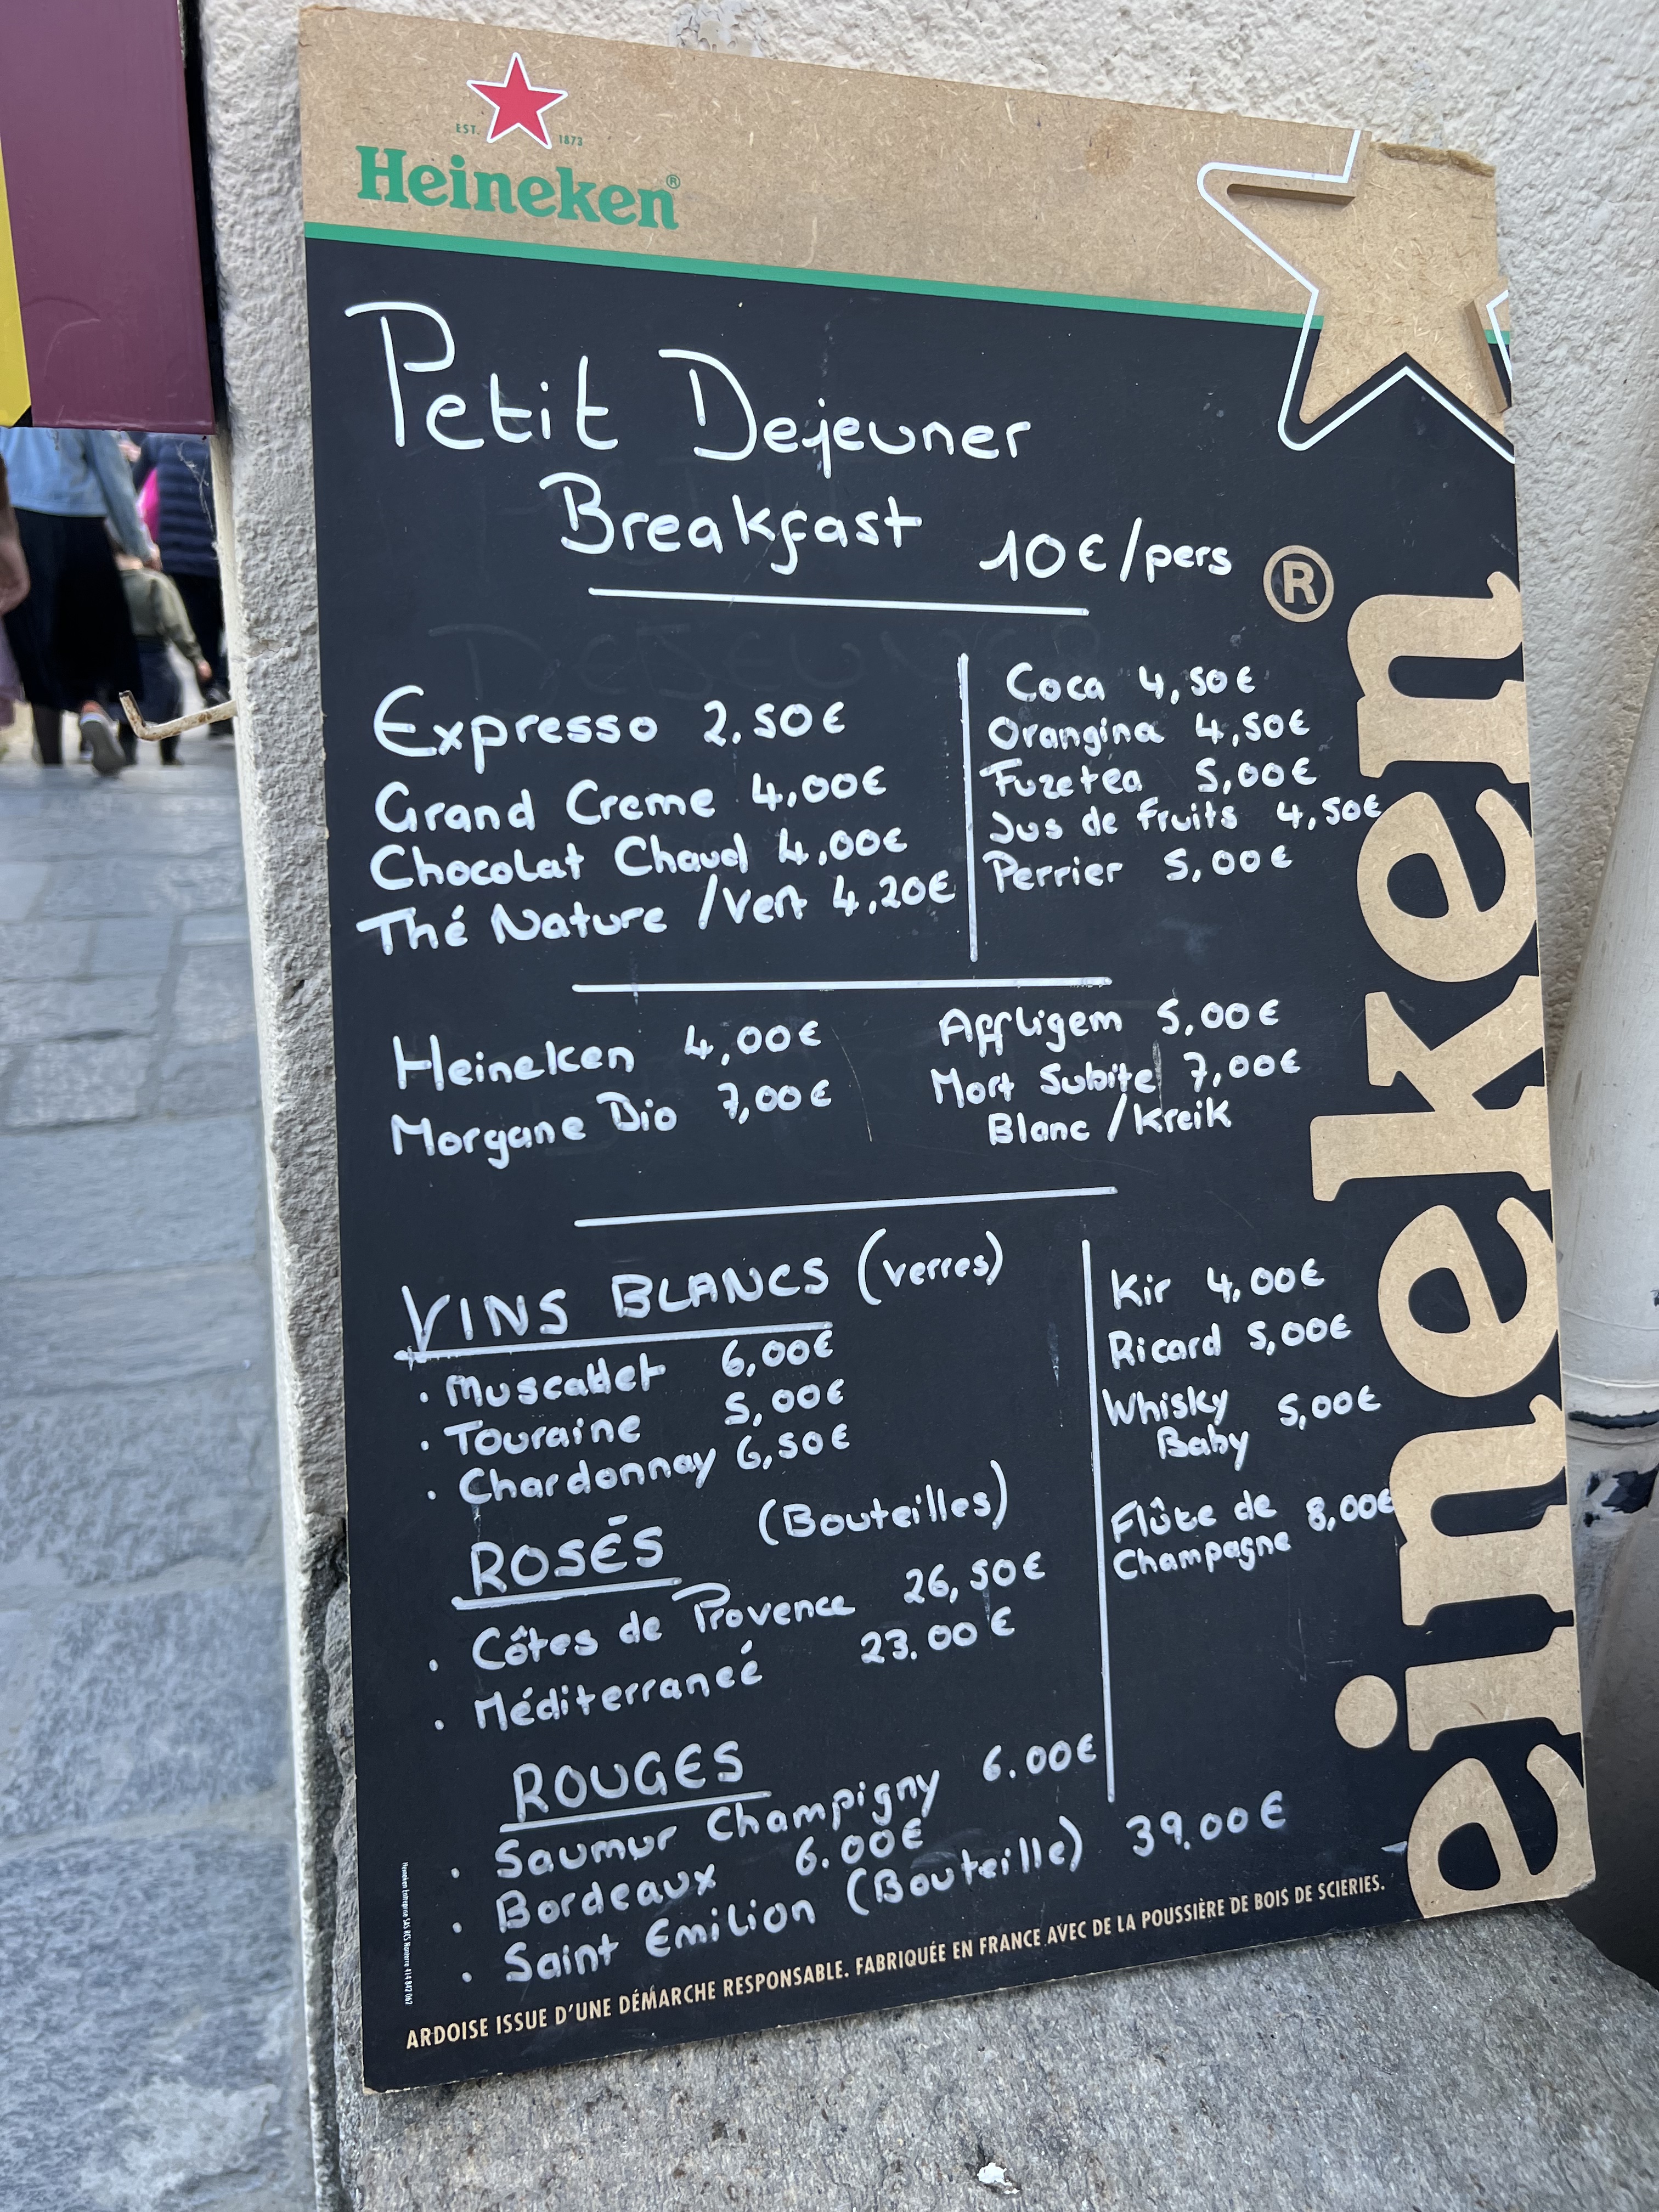 EST. 1873
Heineken®
Petit Dejeuner
Breakfast 10€/pers
Expresso 2,50€
Grand Creme 4,00€
Chocolat Chaud 4,00€
Thé Nature /Vert 4,20€
Coca 4,50€
Orangina 4,50€
Fuzetea 5,00€
Jus de fruits 4,50€
Perrier 5,00€
Heineken 4,00€
Morgane Bio 7,00€
Affligem 5,00€
Mort Subite 7,00€
Blanc /Kreik
VINS BLANCS (verres)
· Muscattet 6,00€
· Touraine 5,00€
· Chardonnay 6,50€
ROSÉS (Bouteilles)
· Côtes de Provence 26,50€
· Méditerraneé 23.00€
ROUGES
· Saumur Champigny 6.00€
· Bordeaux 6.00€
· Saint Emilion (Bouteille) 39.00€
Kir 4,00€
Ricard 5,00€
Whisky 5,00€
Baby
Flûte de 8,00€
Champagne
eineken®
ARDOISE ISSUE D'UNE DÉMARCHE RESPONSABLE. FABRIQUÉE EN FRANCE AVEC DE LA POUSSIÈRE DE BOIS DE SCIERIES.